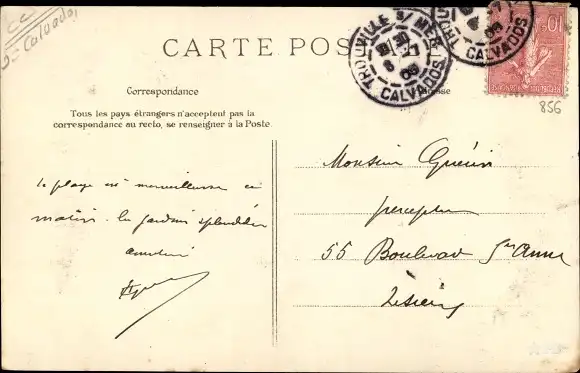 Calvados
CARTE POS
TROUVILLE S/ MER
CALVADOS
CALVADOS
10
856
Correspondance
Tous les pays étrangers n'acceptent pas la
correspondance au recto, se renseigner à la Poste
la plage est merveilleuse ce
matin. les jardins splendides
amitiés
Monsieur Guérin
percepteur
55 Boulevard Ste Anne
Lisieux